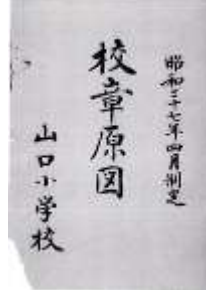 昭和三十七年四月制定
校章原図
山口小学校